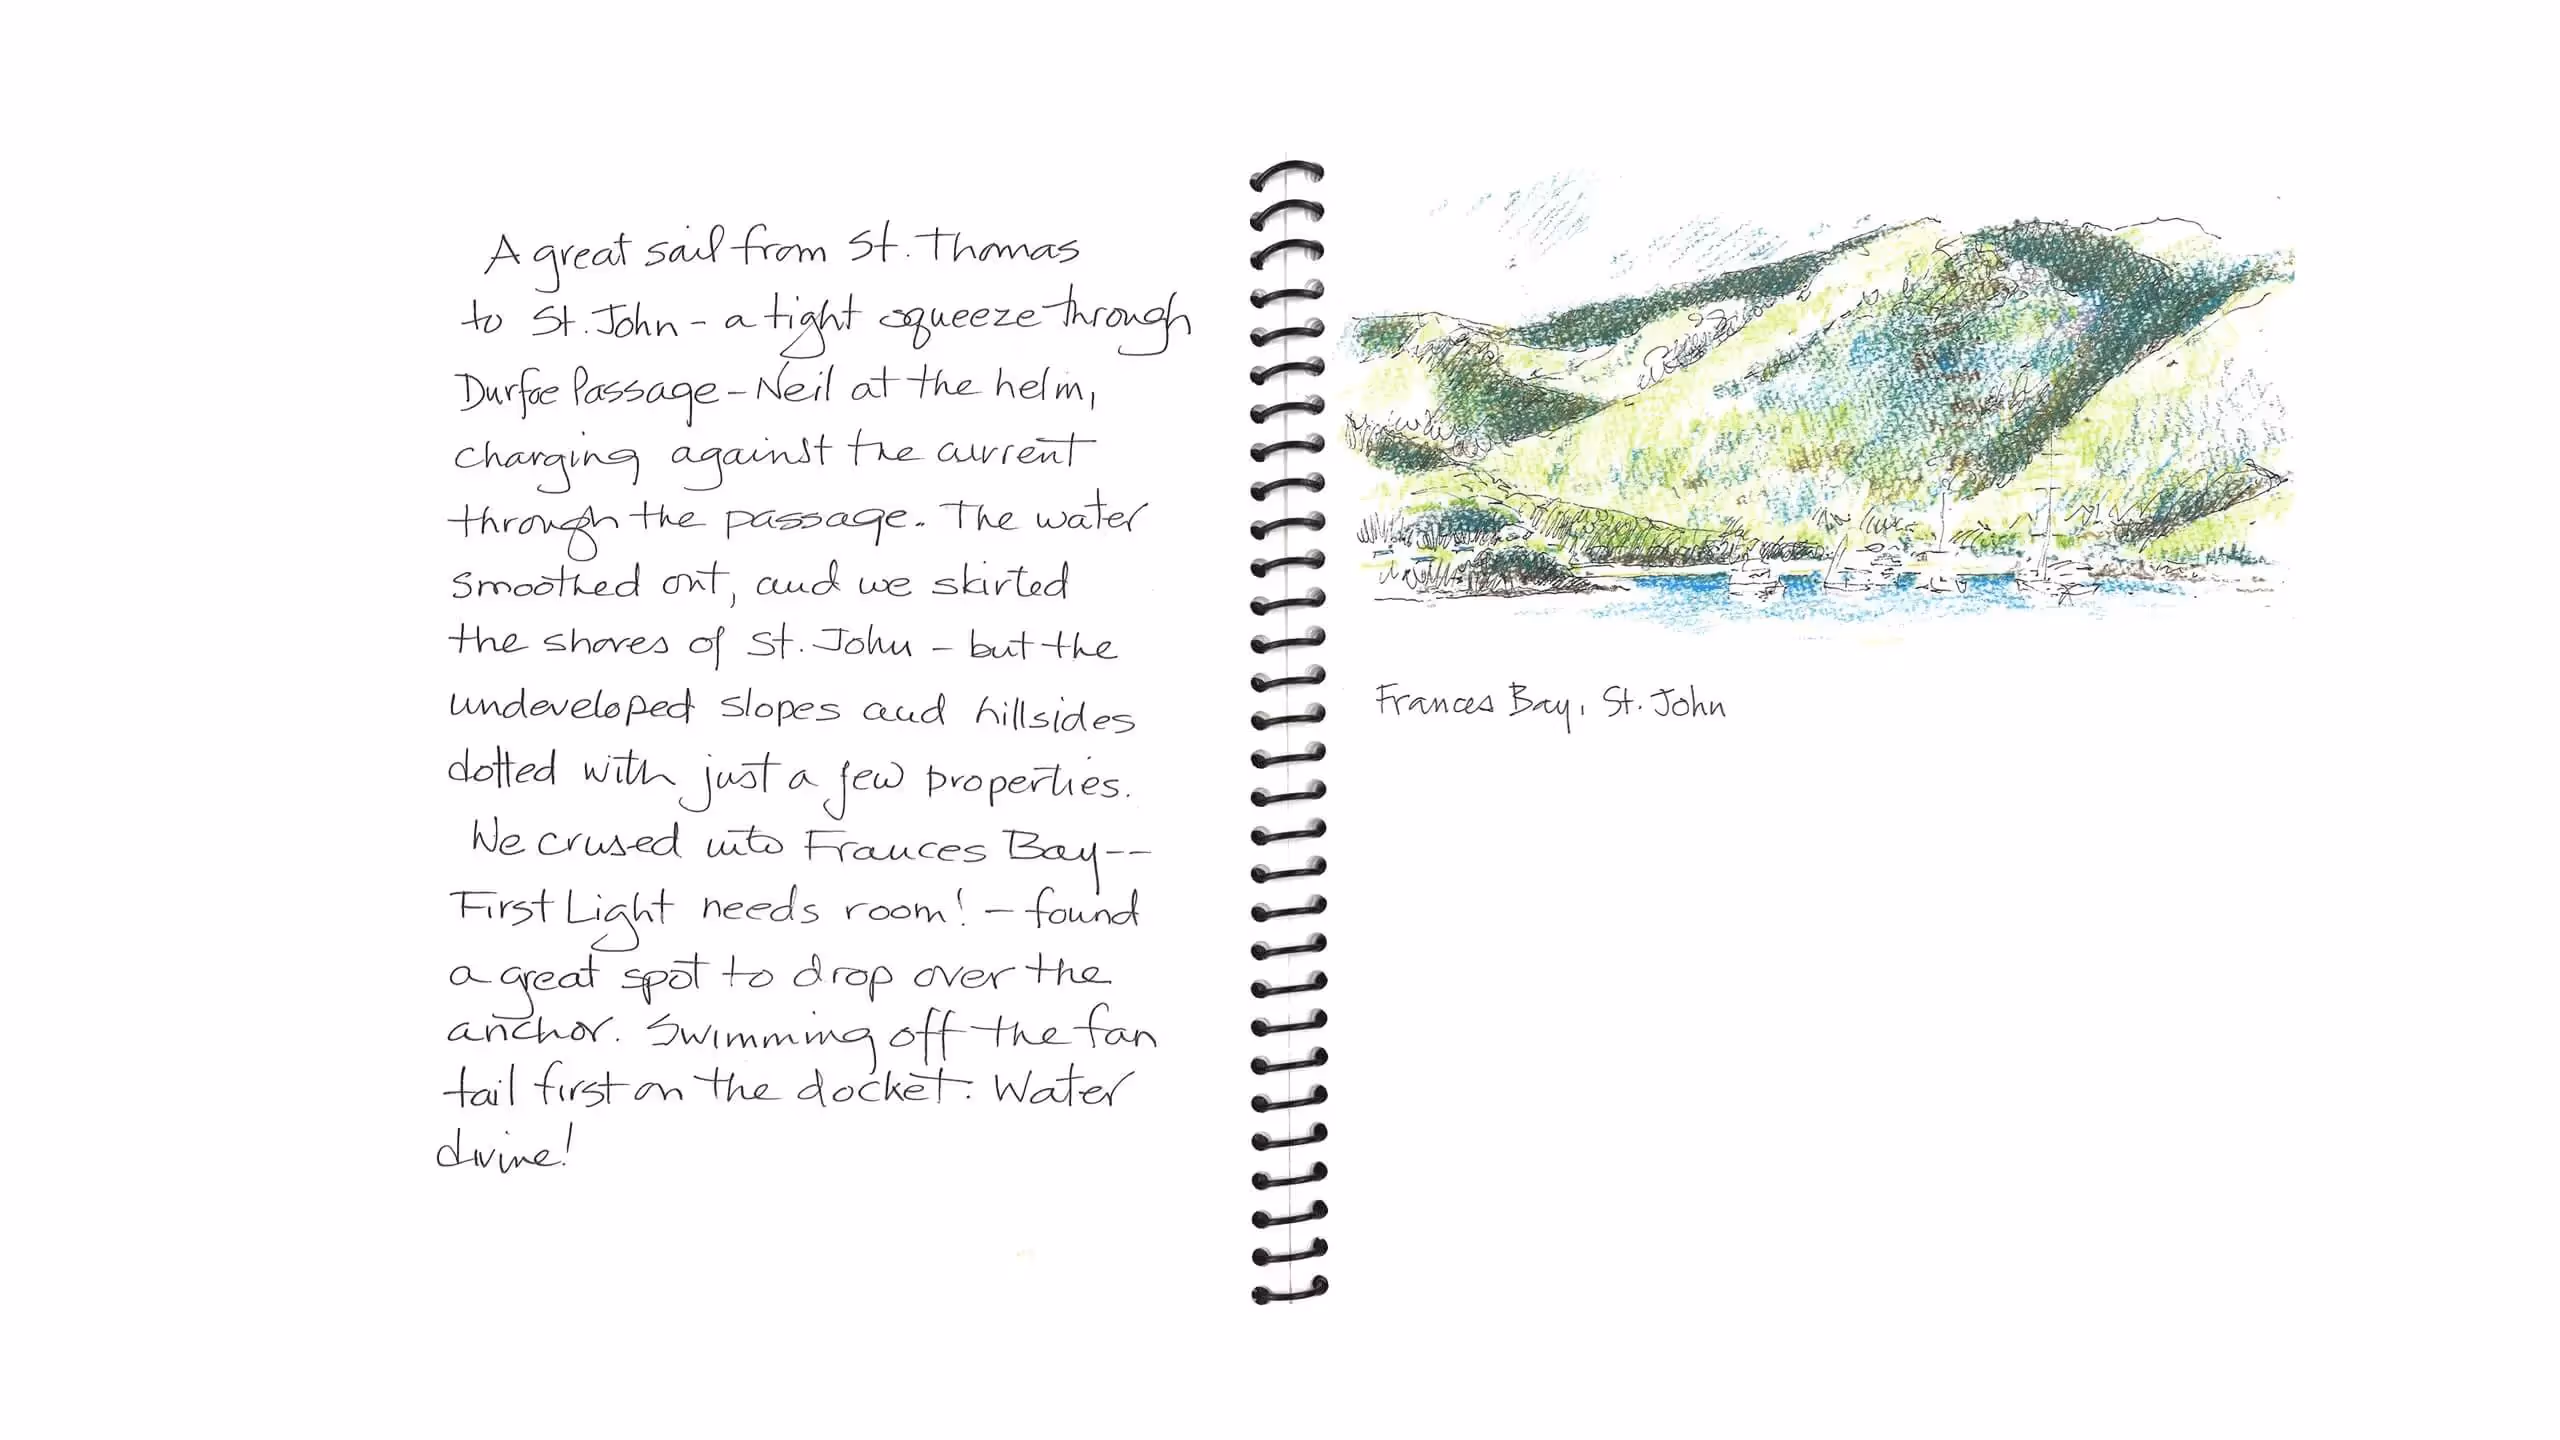 A great sail from St. Thomas
to St. John - a tight squeeze through
Durfoe Passage - Neil at the helm,
charging against the current
through the passage. The water
smoothed out, and we skirted
the shores of St. John - but the
undeveloped slopes and hillsides
dotted with just a few properties.
We crused into Frances Bay--
First Light needs room! - found
a great spot to drop over the
anchor. Swimming off the fan
tail first on the docket. Water
divine!
Frances Bay, St. John